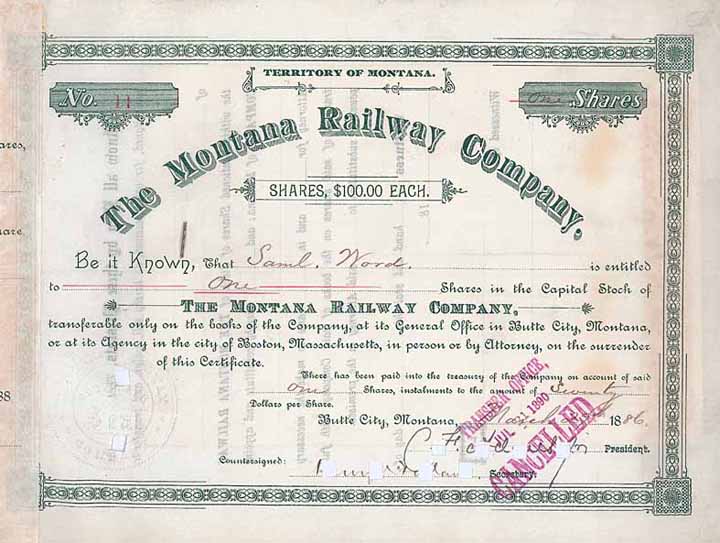 TERRITORY OF MONTANA.
No. 11
One Shares
The Montana Railway Company,
SHARES, $100.00 EACH.
Be it Known, That Saml. Word. is entitled
to One Shares in the Capital Stock of
THE MONTANA RAILWAY COMPANY,
transferable only on the books of the Company, at its General Office in Butte City, Montana,
or at its Agency in the city of Boston, Massachusetts, in person or by Attorney, on the surrender
of this Certificate.
There has been paid into the treasury of the Company on account of said
One Shares, instalments to the amount of Twenty
Dollars per Share.
Butte City, Montana, March 1886.
President.
Countersigned:
Secretary.
TRANSFER OFFICE,
JUL 1890
CANCELLED
ares,
are
88